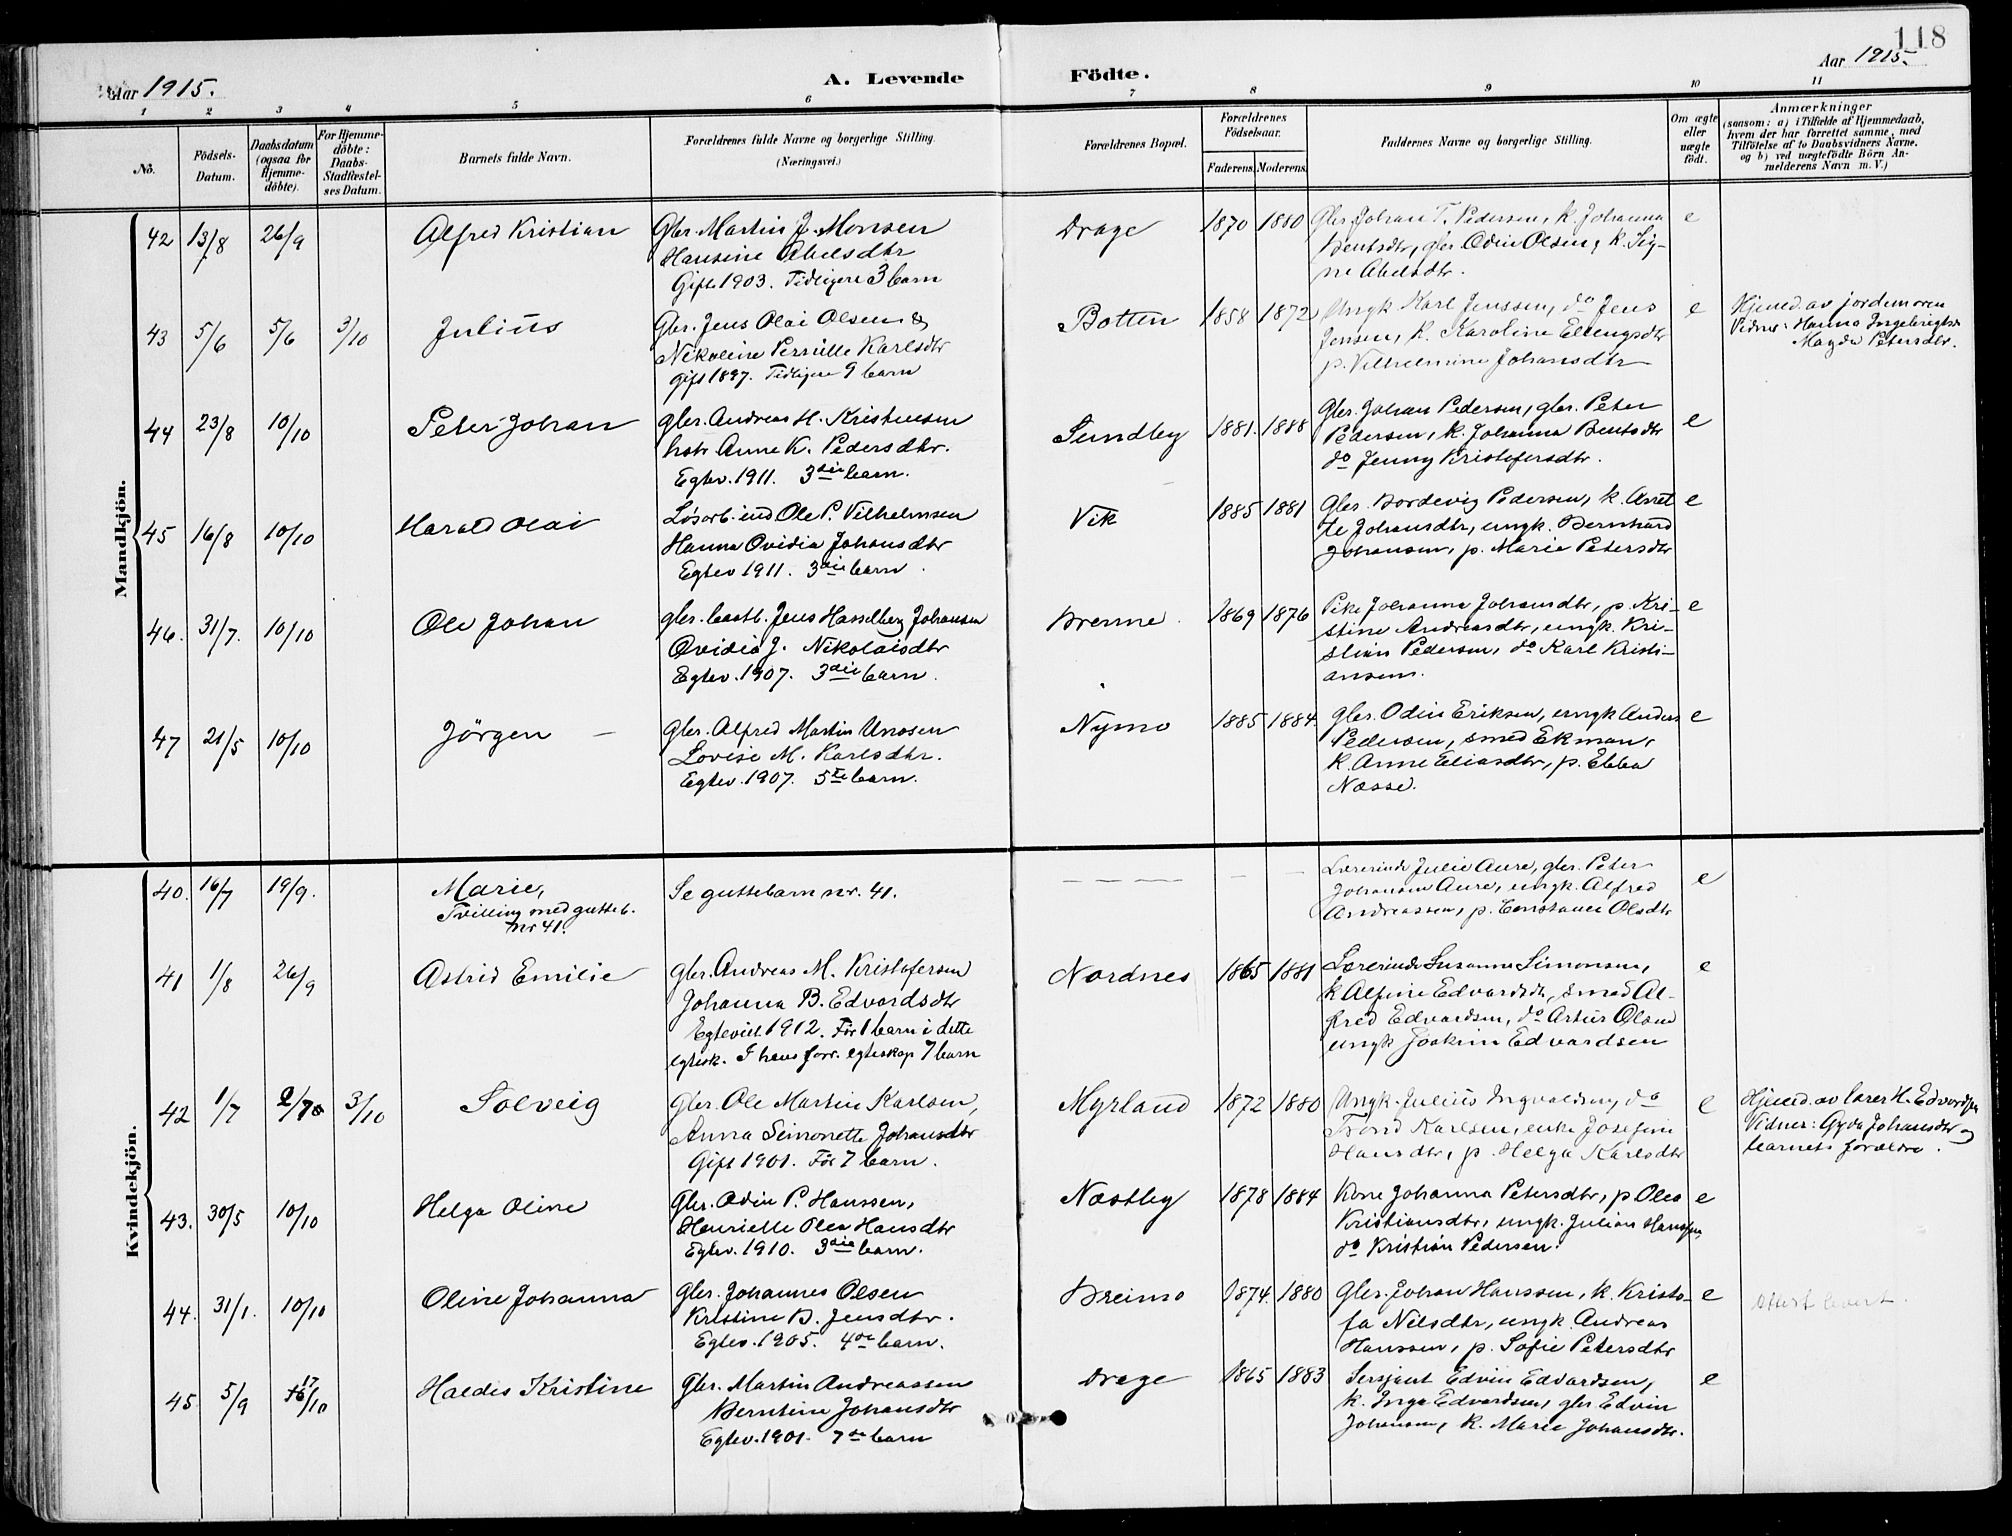 118
Aar 1915.
A. Levende
Födte.
Aar 1915.
1 2 3 4 5 6 7 8 9 10 11
No.
Födsels-
Datum.
Daabsdatum
(ogsaa for
Hjemme-
döbte).
For Hjemme-
döbte:
Daabs-
Stadfæstel-
ses Datum.
Barnets fulde Navn.
Forældrenes fulde Navne og borgerlige Stilling.
(Næringsvei.)
Forældrenes Bopæl.
Forældrenes
Födselsaar.
Faderens. Moderens.
Faddernes Navne og borgerlige Stilling.
Om ægte
eller
uægte
födt.
Anmærkninger
(saasom: a) i Tilfælde af Hjemmedaab,
hvem der har forrettet samme, med
Tilföielse af to Daabsvidners Navne.
og b) ved uægtefödte Börn An-
melderens Navn m. V.)
Mandkjön.
42 13/8 26/9 Alfred Kristian
Gbr. Martin J. Monsen
Hansine Abelsdtr
Gift 1903. Tidligere 3 barn
Drage 1870 1880
Gbr. Johan T. Pedersen, k. Johanna
Bentsdtr, gbr. Odin Olsen, k. Sig-
ne Abelsdtr.
e
43 5/6 5/6 3/10 Julius
Gbr. Jens Olai Olsen &
Nikoline Pernille Karlsdtr
gift 1897. Tidligere 9 barn
Botten 1858 1872
Ungk Karl Jenssen, do Jens
Jensen, k. Karoline Ellingsdtr
p. Vilhelmine Johansdtr
e
Hjemmed. av jordemoren
Vidner: Hanna Ingebrigtsdr
Magda Petersdtr.
44 23/8 10/10 Peter Johan
gbr. Andreas H. Kristensen
hstr. Anne K. Pedersdtr.
Egtev. 1911. 3die barn.
Sundby 1881. 1888
Gbr. Johan Pedersen, gbr. Peter
Pedersen, k. Johanna Bentsdtr
do Jenny Kristofersdtr.
e
45 16/8 10/10 Harald Olai
Løsarb. ind Ole P. Vilhelmsen
Hanna Ovidia Johansdtr
Egtev 1911. 3die barn.
Vik 1885 1881
Gbr. Hordevig Pedersen, k. Anet
te Johansdtr, ungk. Bernhard
Johansen, p. Marie Petersdtr
e
46. 31/7. 10/10 Ole Johan
gbr. baatb. Jens Hasselberg Johansen
Ovidia J. Nikolaisdtr
Egtev. 1907. 3die barn.
Brenne. 1869 1876
Pike Johanna Johansdtr, p. Kri-
stine Andreasdtr, ungk. Kri-
stian Pedersen, do Karl Kristi-
ansen.
e
47 21/5 10/10 Jörgen —
Gbr. Alfred Martin Unosen
Lovise M. Karlsdtr.
Egtev. 1907. 5te barn.
Nymo 1885 1884.
Gbr. Odin Eriksen, ungk Anders
Pedersen, smed Ekman,
k. Anne Eliasdtr, p. Ebba
Næsse.
e
Kvindekjön.
40. 16/7 19/9. Marie,
Tvilling med gutteb.
nr 41.
Se guttebarn nr. 41.
— — — — — —
Lærerinde Julie Aure, gbr. Peter
Johansen Aure, ungk. Alfred
Andreassen, p. Constance Olsdtr
e
41 1/8 26/9 Astrid Emilie
gbr. Andreas M. Kristofersen
Johanna B. Edvardsdtr
Egteviet 1912. Før 1 barn i dette
egtesk. I hans forr. egteskap 7 barn
Nordnes 1865 1881
Lærerinde Susanne Simonsen,
k Alfine Edvardsdtr, smed Al-
fred Edvardsen, do Artur Olsen
ungk Joakim Edvardsen
e
42 1/7 2/7 3/10 Solveig
Gbr. Ole Martin Karlsen,
Anna Simonette Johansdtr
Gift 1901. Før 7 barn.
Myrland 1872 1880
Ungk. Julius Ingvaldsen, do
Trond Karlsen, enke Josefine
Hansdtr, p. Helga Karlsdtr
e
Hjemmed. av lærer H. Edvardsen
Vidner: Gyda Johansdtr og
barnets forældre.
43. 30/5 10/10 Helga Oline
Gbr. Odin P. Hanssen,
Henriette Olea Hansdtr
Egtev. 1910. 3die barn.
Næstby 1878 1884
Kone Johanna Petersdtr, p Olea
Kristiansdtr, ungk. Julian Hanssen,
do Kristian Pedersen.
e
44. 31/1. 10/10 Oline Johanna
Gbr. Johannes Olsen
Kristine B. Jensdtr.
Egtev. 1905. 4de barn.
Breimo 1874. 1880
Gbr. Johan Hanssen, k. Kristo-
fa Nilsdtr, ungk. Andreas
Hanssen, p. Sofie Petersdtr
e
45 5/9 17/10 Haldis Kristine
Gbr. Martin Andreassen
Berntine Johansdtr
Egtev. 1901. 7de barn
Drage 1865 1883
Sersjant Edvin Edvardsen,
k. Inga Edvardsen, gbr Edvin
Johansen, k. Marie Johansdtr.
e